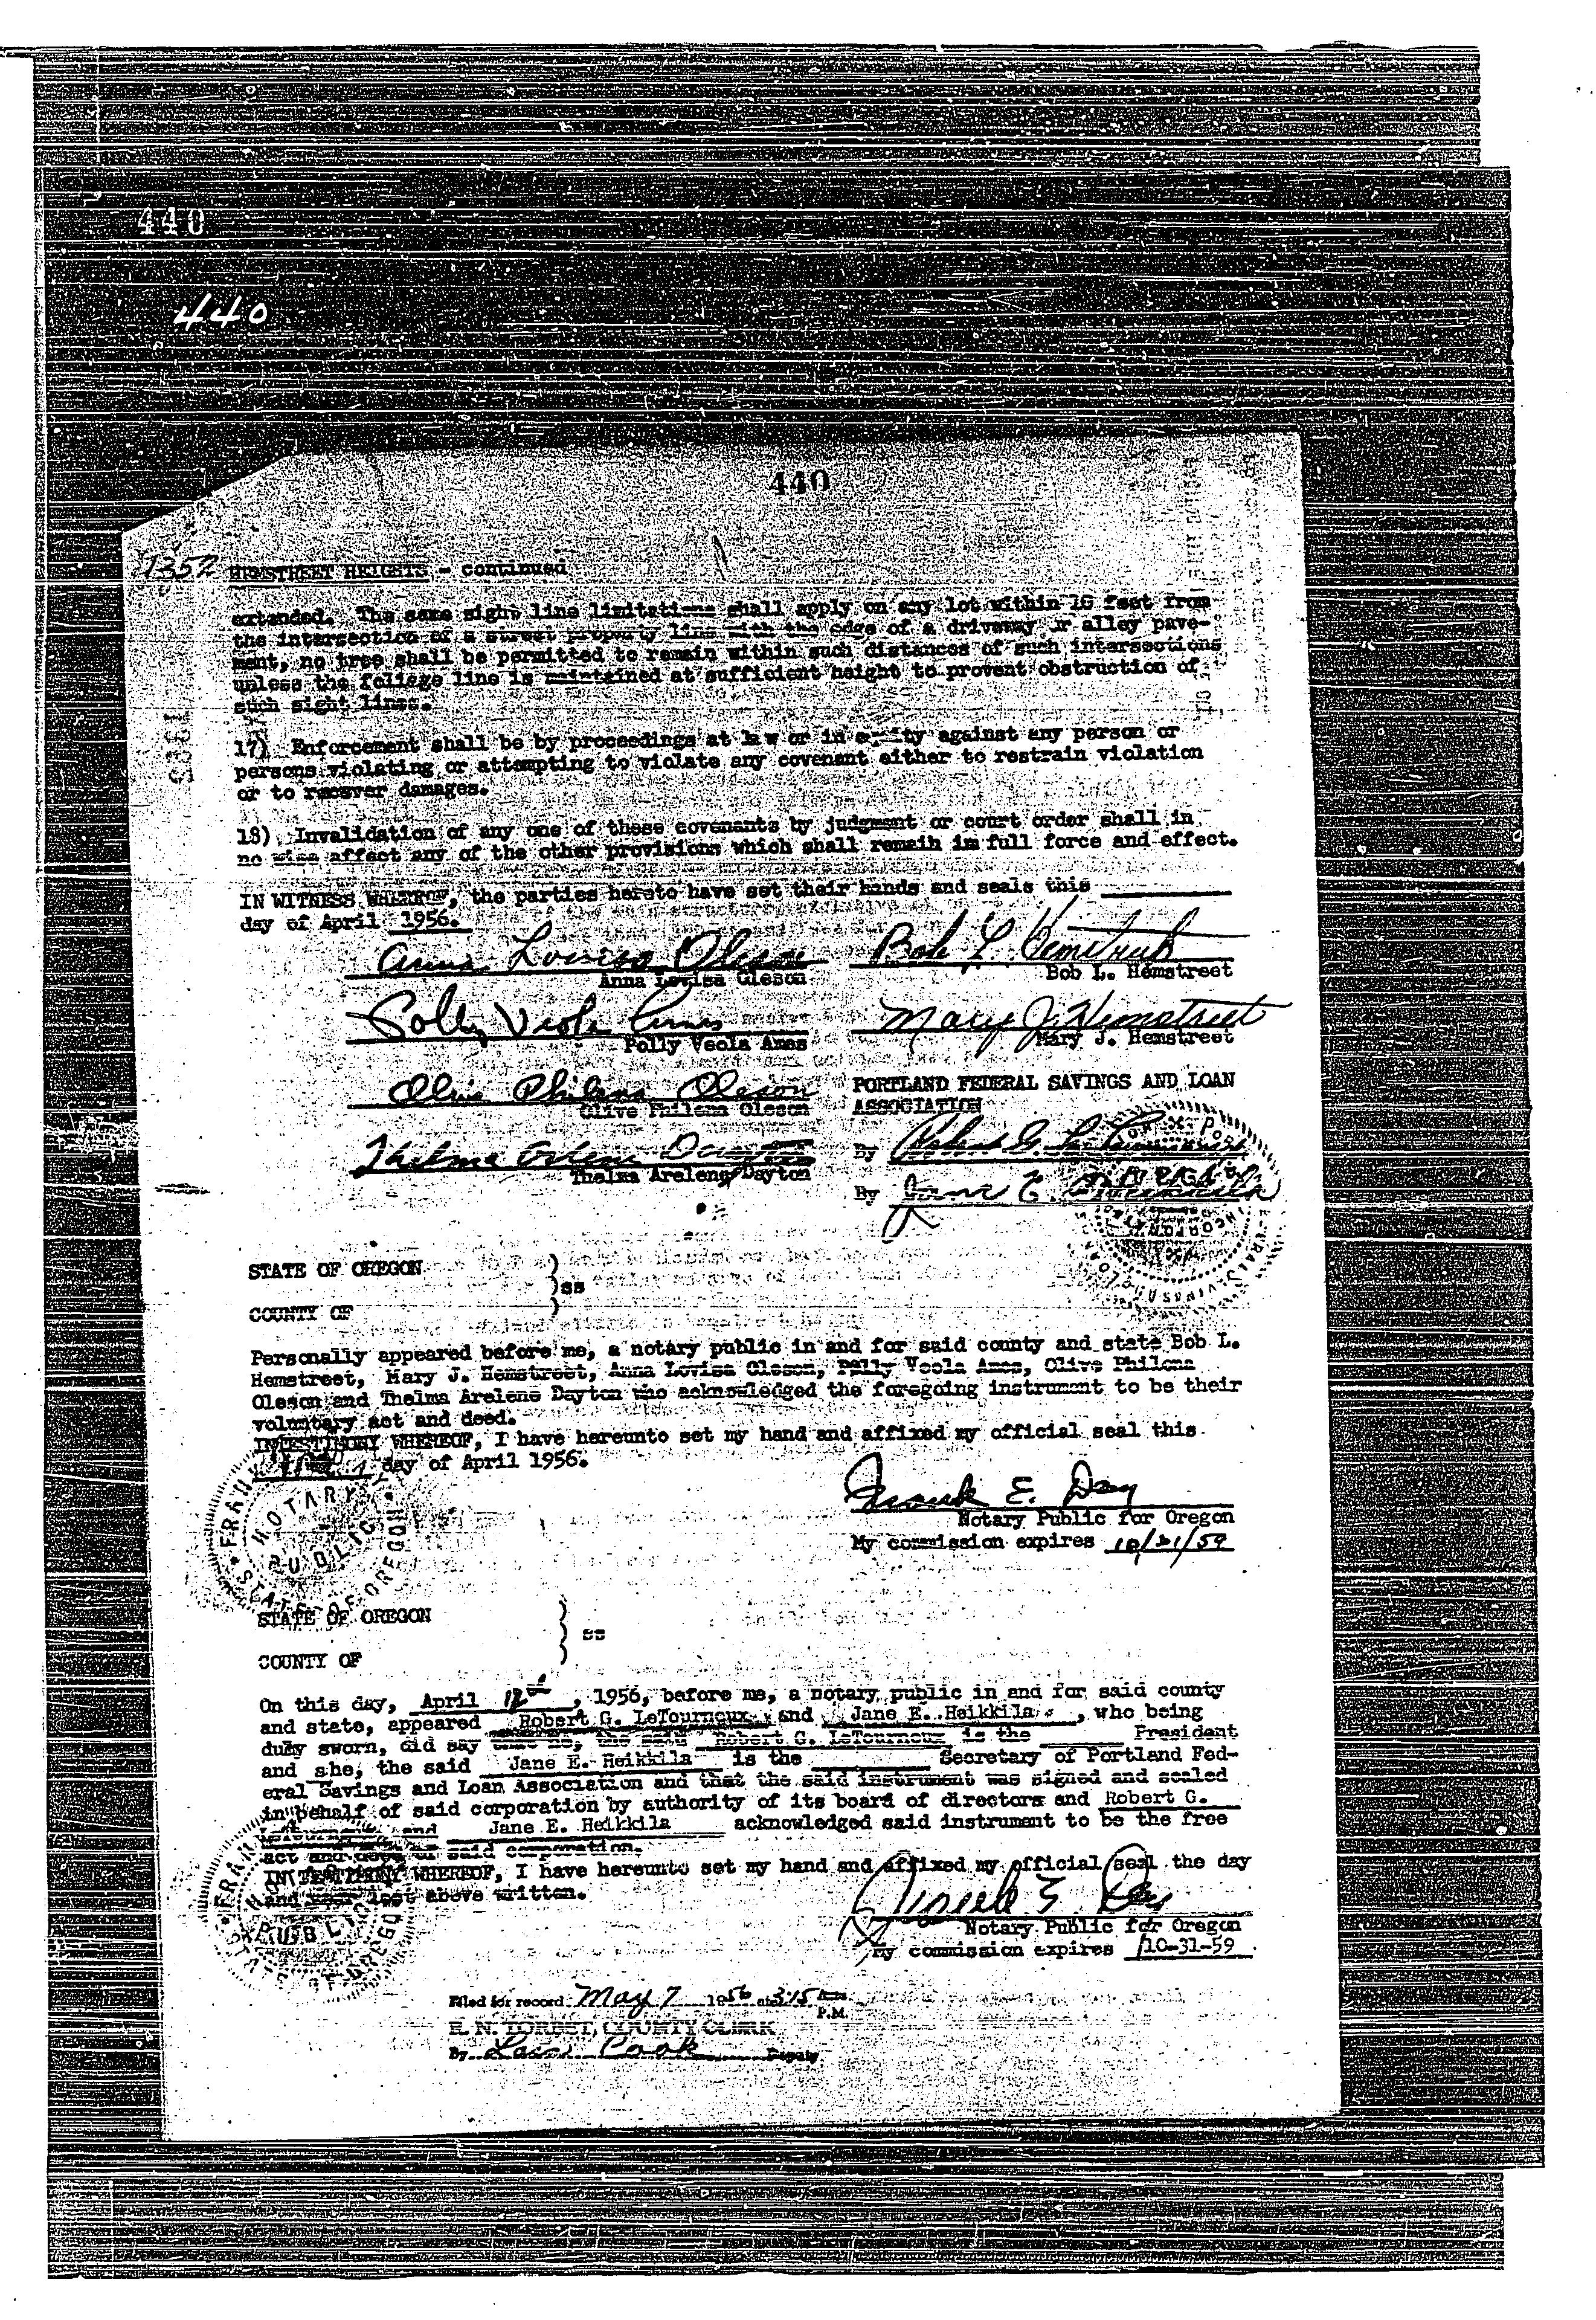 440
440
440
HEMSTREET HEIGHTS - continued
extended. The same sight line limitations shall apply on any lot within 10 feet from
the intersection of a street property line with the edge of a driveway or alley pave-
ment, no tree shall be permitted to remain within such distances of such intersections
unless the foliage line is maintained at sufficient height to prevent obstruction of
such sight lines.
17) Enforcement shall be by proceedings at law or in equity against any person or
persons violating or attempting to violate any covenant either to restrain violation
or to recover damages.
18) Invalidation of any one of these covenants by judgment or court order shall in
no wise affect any of the other provisions which shall remain in full force and effect.
IN WITNESS WHEREOF, the parties hereto have set their hands and seals this
day of April 1956.
Anna Lovisa Oleson Bob L. Hemstreet
Anna Lovisa Oleson Bob L. Hemstreet
Polly Veola Ames Mary J. Hemstreet
Polly Veola Ames Mary J. Hemstreet
Olive Philena Oleson PORTLAND FEDERAL SAVINGS AND LOAN
Olive Philena Oleson ASSOCIATION
Thelma Arlene Dayton By Robert G. LeTourneux
Thelma Arelene Dayton
By Jane E. Heikkila
STATE OF OREGON )
)ss
COUNTY OF )
Personally appeared before me, a notary public in and for said county and state Bob L.
Hemstreet, Mary J. Hemstreet, Anna Lovisa Oleson, Polly Veola Ames, Olive Philena
Oleson and Thelma Arelene Dayton who acknowledged the foregoing instrument to be their
voluntary act and deed.
IN TESTIMONY WHEREOF, I have hereunto set my hand and affixed my official seal this
day of April 1956.
Frank E. Day
Notary Public for Oregon
My commission expires 10/31/59
NOTARY PUBLIC STATE OF OREGON
STATE OF OREGON )
) ss
COUNTY OF )
On this day, April 12th, 1956, before me, a notary public in and for said county
and state, appeared Robert G. LeTourneux and Jane E. Heikkila, who being
duly sworn, did say that he, the said Robert G. LeTourneux is the President
and she, the said Jane E. Heikkila is the Secretary of Portland Fed-
eral Savings and Loan Association and that the said instrument was signed and sealed
in behalf of said corporation by authority of its board of directors and Robert G.
LeTourneux and Jane E. Heikkila acknowledged said instrument to be the free
act and deed of said corporation.
IN TESTIMONY WHEREOF, I have hereunto set my hand and affixed my official seal the day
and year last above written.
Frank E. Day
Notary Public for Oregon
My commission expires 10-31-59
Filed for record May 7 1956 at 3:15
P.M.
E. N. TORBET, COUNTY CLERK
By Cook Deputy